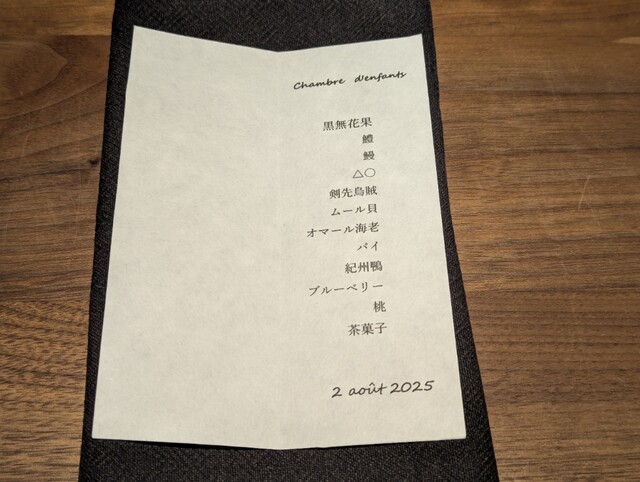 Chambre d'enfants
黒無花果
鱧
鰻
△○
剣先烏賊
ムール貝
オマール海老
パイ
紀州鴨
ブルーベリー
桃
茶菓子
2 août 2025